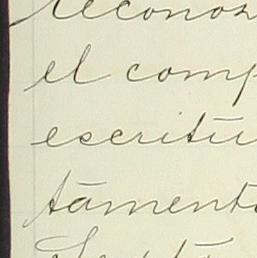 reconoz
el comp
escritu
tament